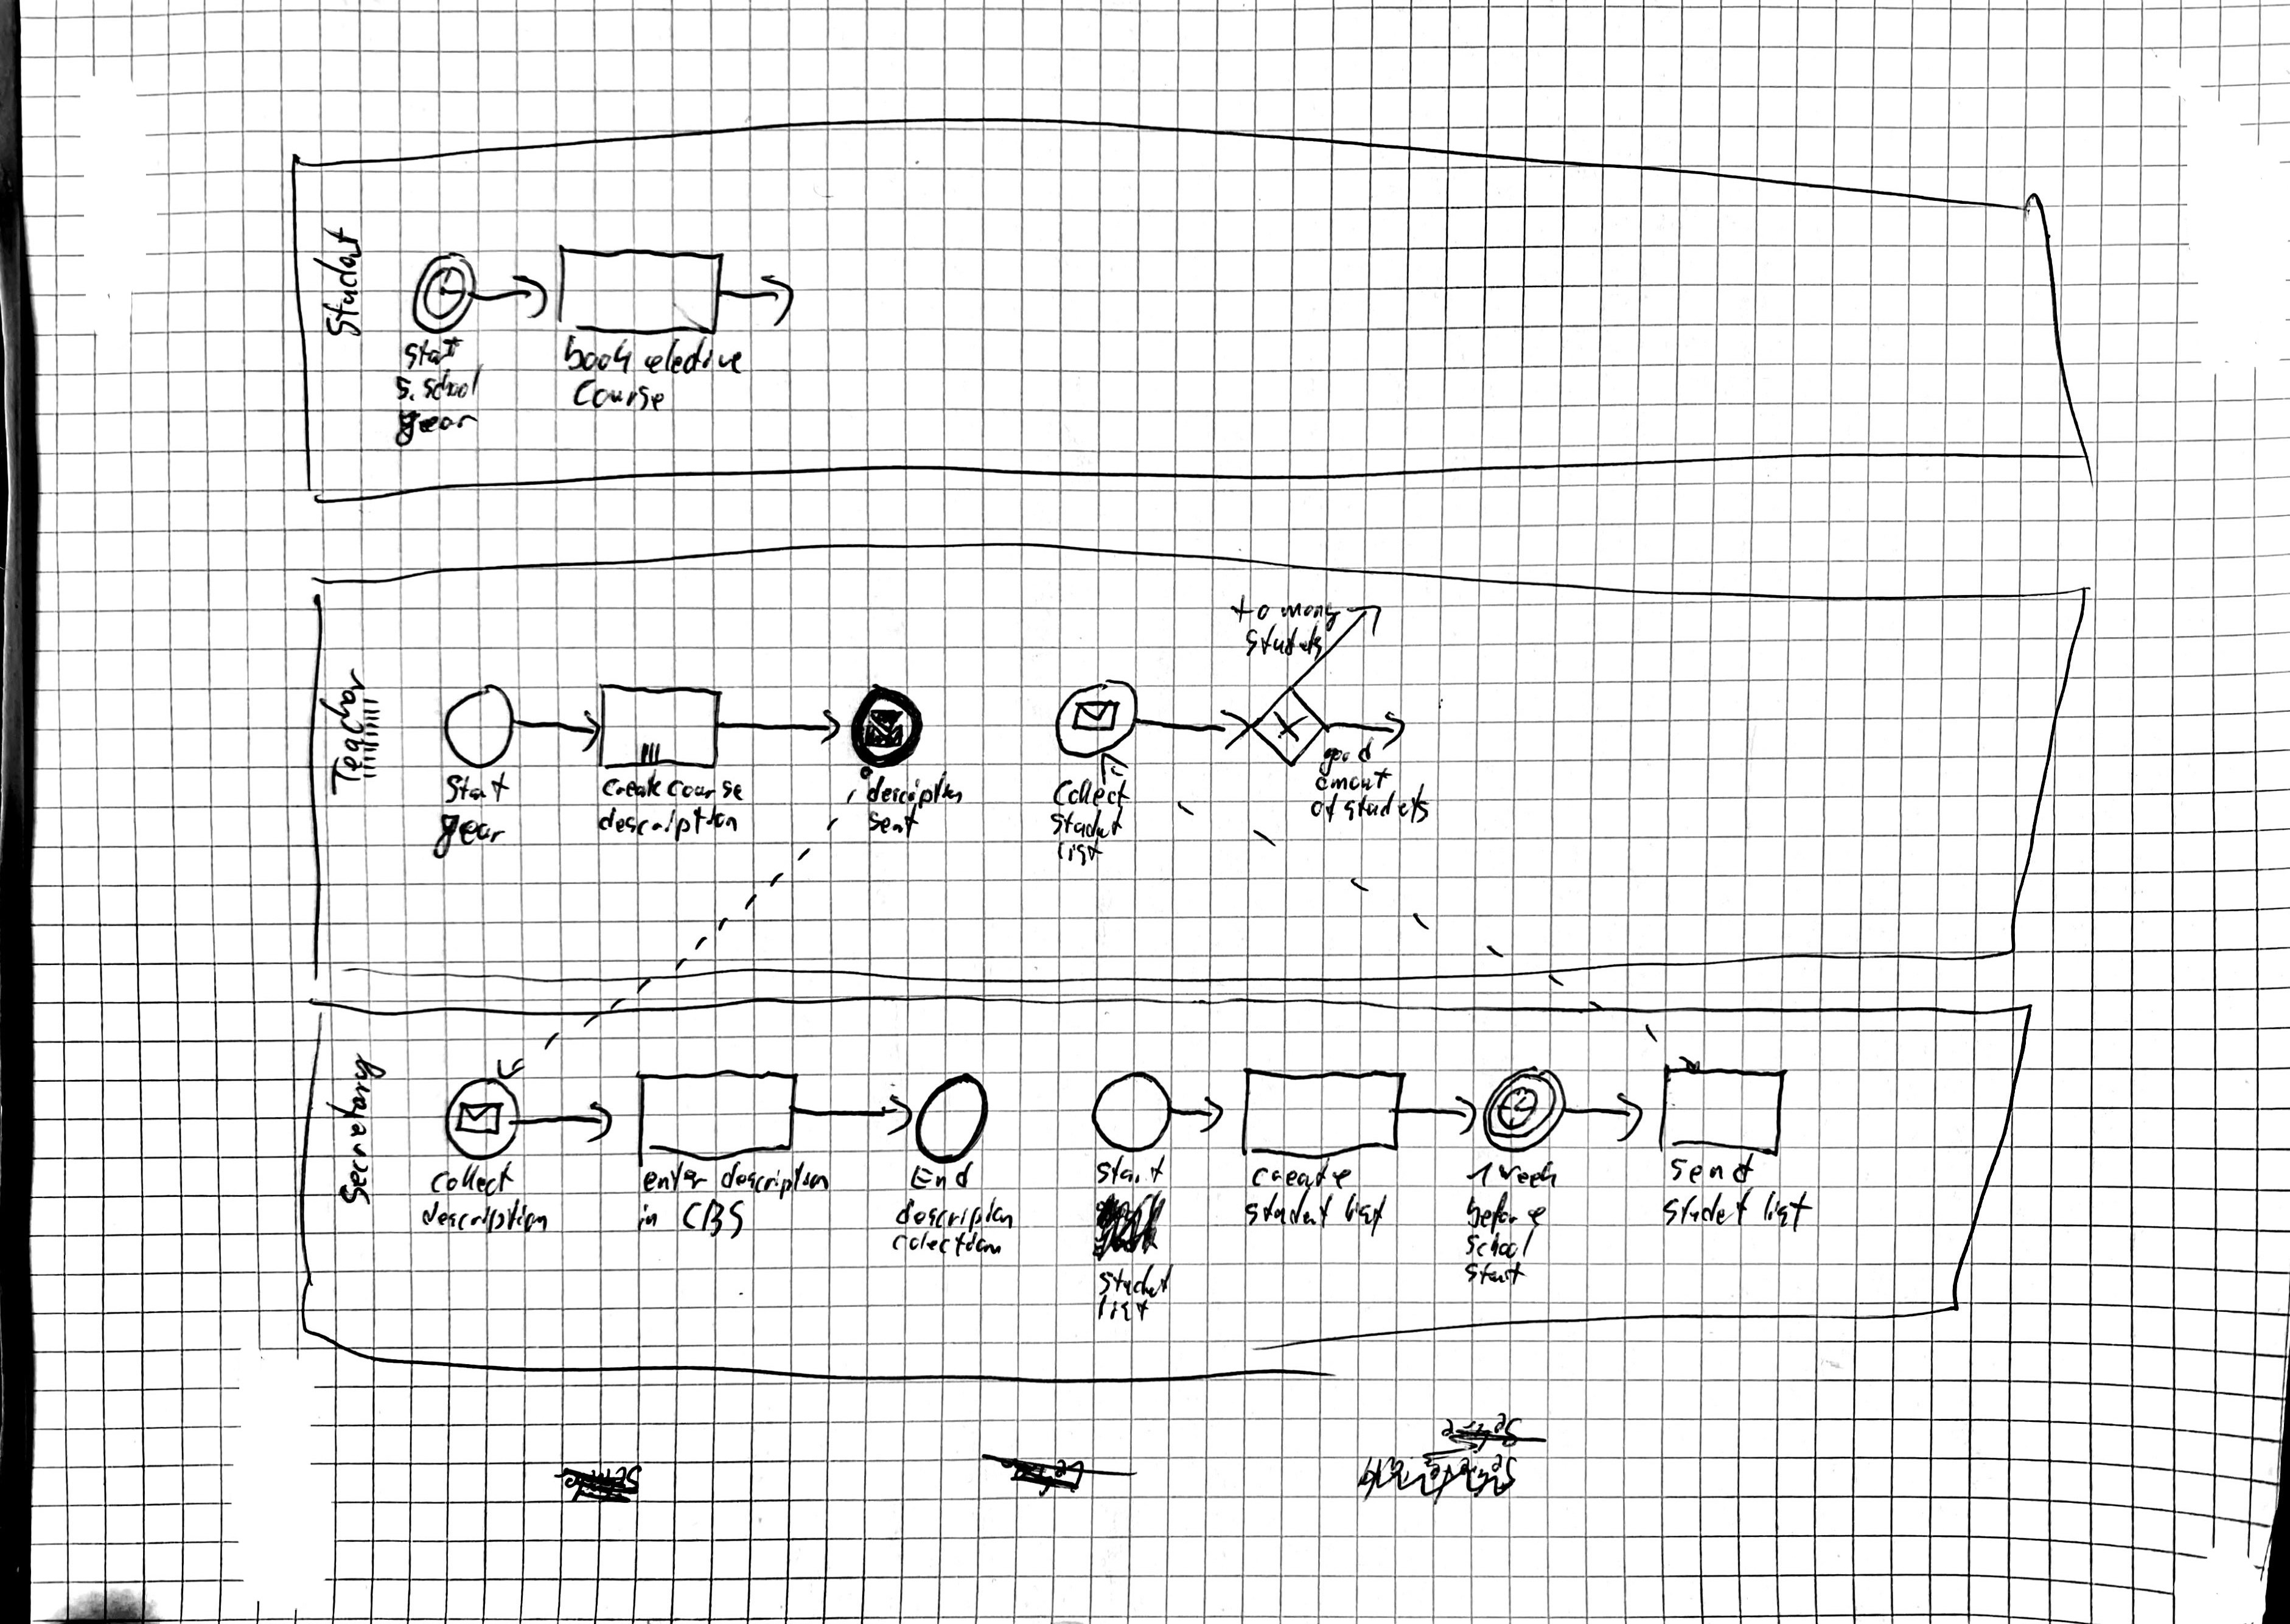 Student
Start
5. school
year
book elective
Course
Teacher
Start
year
create course
description
description
sent
Collect
student
list
to many
students
good
amout
of studets
Secretary
collect
description
enter description
in CBS
End
description
colection
start
student
list
create
student list
1 week
before
school
start
send
studet list